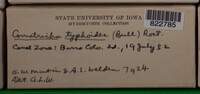 STATE UNIVERSITY OF IOWA
MYXOMYCETE COLLECTION
822785
Comatricha typhoides (Bull) Rost.
Canal Zone: Barro Colo. Isl., 19 July 52
G.W. Martin & A.L. Welden 7924
Det. A.L.W.